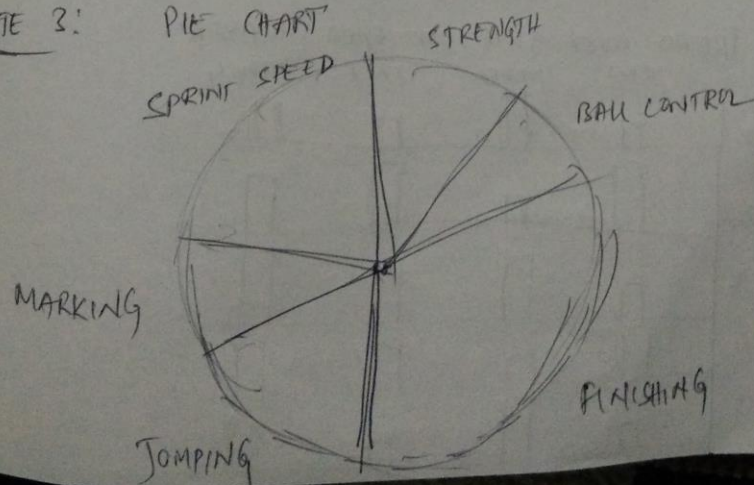 TE 3: PIE CHART
STRENGTH
SPRINT SPEED
BALL CONTROL
MARKING
FINISHING
JOMPING